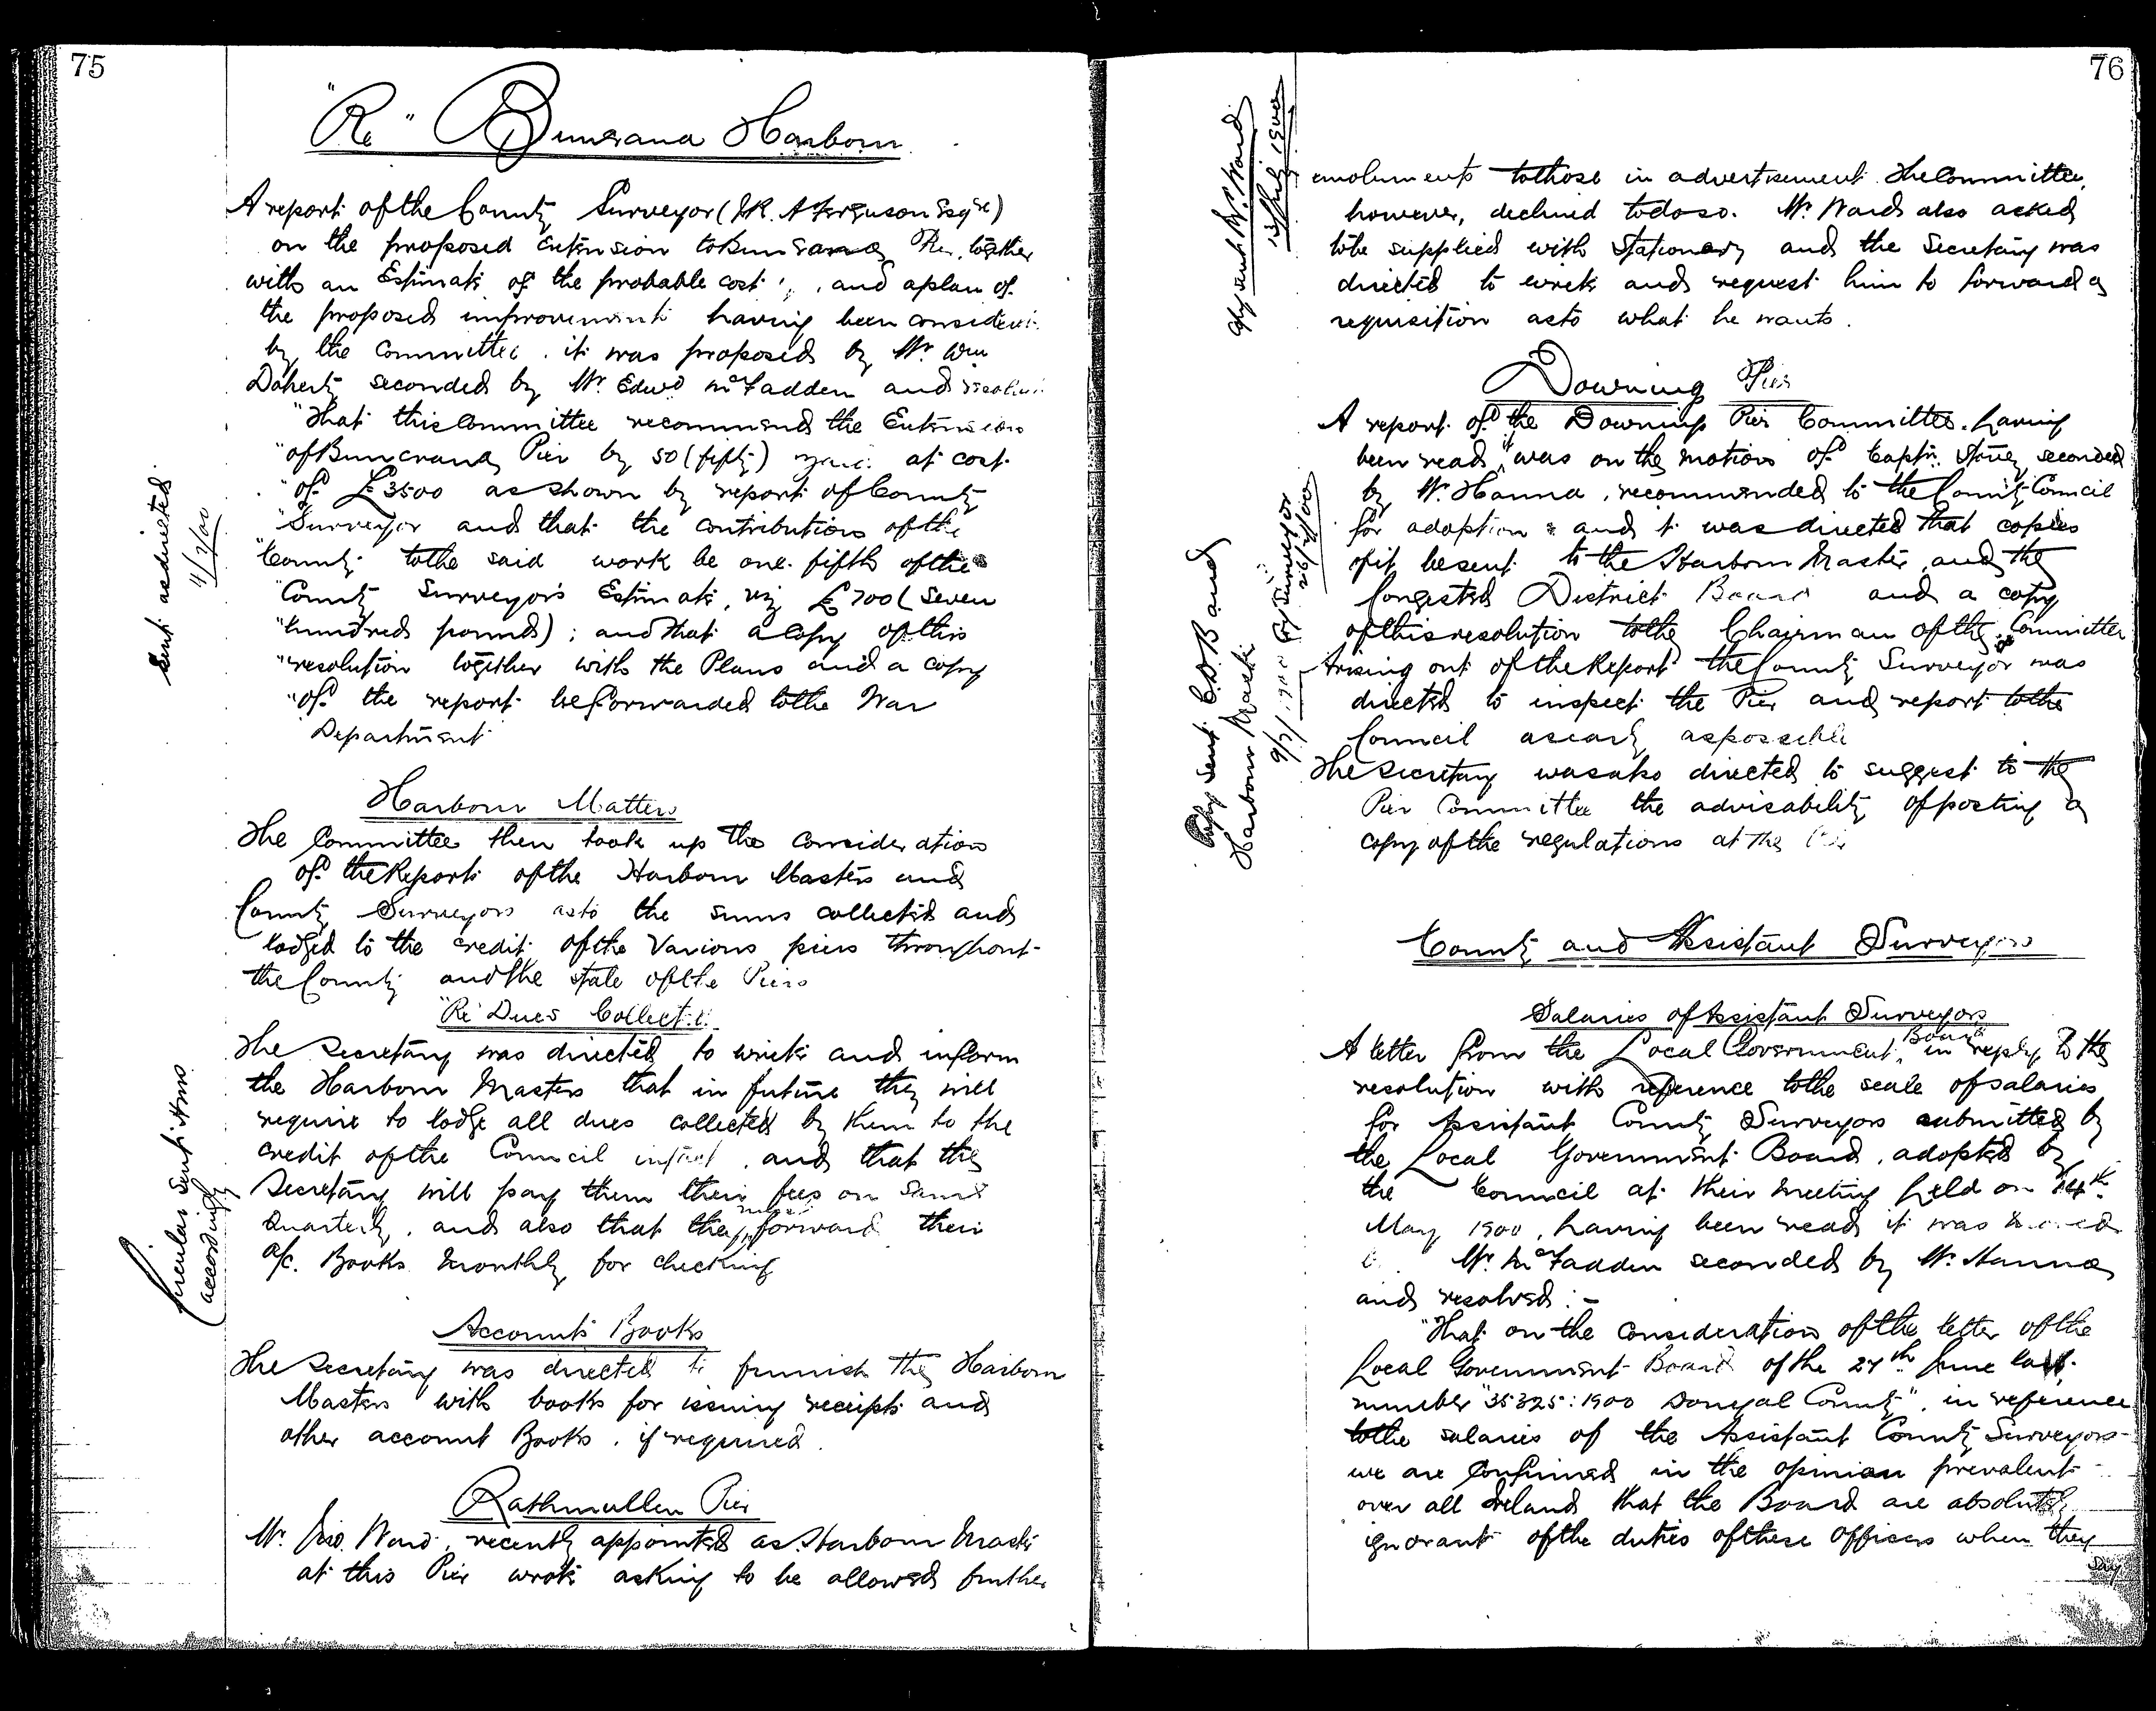 75
"Re" Buncrana Harbour
A report of the County Surveyor (J.R. A Ferguson Esqre)
on the proposed Extension to Buncrana Pier, together
with an Estimate of the probable cost, and a plan of
the proposed improvements having been considered
by the Committee. it was proposed by Mr. Wm
Doherty seconded by Mr. Edwd McFadden and resolved
"That this Committee recommends the Extension
"of Buncrana Pier by 50 (fifty) yards at cost
"of £3500 as shown by report of County
"Surveyor and that the contribution of the
"County to the said work be one fifth of the
"County Surveyor's Estimate, viz £700 (Seven
"hundred pounds); and that a copy of this
"resolution together with the Plans and a copy
"of the report be forwarded to the War
Department
Sent as directed
11/7/00
Harbour Matters
The Committee then took up the consideration
of the Reports of the Harbour Masters and
County Surveyors as to the sums collected and
lodged to the credit of the Various piers throughout
the County and the state of the Piers
"Re" Dues Collected
The Secretary was directed to write and inform
the Harbour Masters that in future they will
require to lodge all dues collected by them to the
credit of the Council intact, and that the
Secretary will pay them their fees on same
Quarterly, and also that they must forward their
a/c. Books monthly for checking
Circulars sent Hms
accordingly
Accounts Books
The Secretary was directed to furnish the Harbour
Masters with books for issuing receipts and
other account Books, if required.
Rathmullen Pier
Mr. Ward, recently appointed as Harbour Master
at this Pier wrote asking to be allowed further
76
emoluments to those in advertisement. The Committee,
however, declined to do so. Mr. Ward also asked
to be supplied with Stationery and the Secretary was
directed to write and request him to forward a
requisition as to what he wants.
Copy sent W. Ward
13th July 1900
Downing Pier
A report of the Downing Pier Committee, having
been read, it was on the motion of Captn. Stoney seconded
by Mr. Hanna, recommended to the County Council
for adoption: and it was directed that copies
of it be sent to the Harbour Master, and the
Congested District Board and a copy
of this resolution to the Chairman of the Committee
Arising out of the Report the County Surveyor was
directed to inspect the Pier and report to the
Council as early as possible
The Secretary was also directed to suggest to the
Pier Committee the advisability of posting a
copy of the regulations at the Pier
Copy sent C.D.B and
Harbour Master
9/7/1900 Co Surveyor
26/7/00
County and Assistant Surveyors
Salaries of Assistant Surveyors
A letter from the Local Government Board in reply to the
resolution with reference to the scale of salaries
for Assistant County Surveyors submitted by
the Local Government Board, adopted by
the Council at their meeting held on 14th
May 1900, having been read it was moved
by Mr. McFadden seconded by Mr. Hanna
and resolved:-
"That on the consideration of the letter of the
Local Government Board of the 27th June last,
number "35325:1900 Donegal County", in reference
to the salaries of the Assistant County Surveyors
we are confirmed in the opinion prevalent
over all Ireland that the Board are absolutely
ignorant of the duties of these Officers when they
say